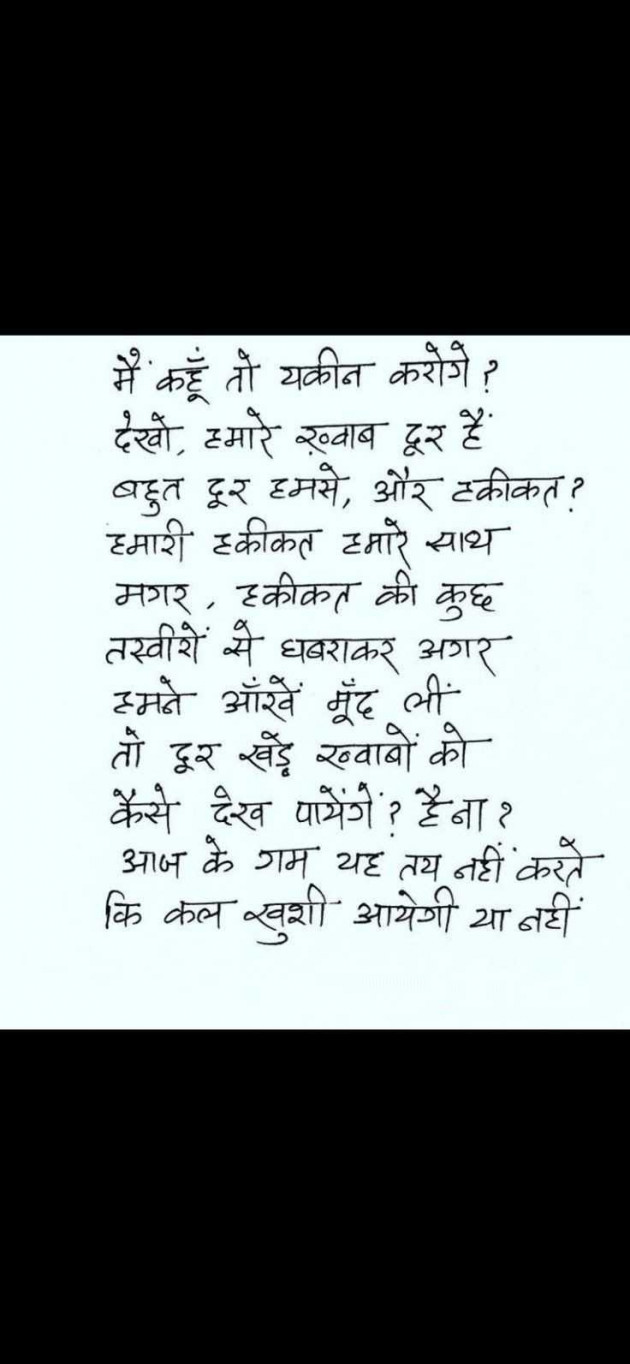 मैं कहूँ तो यकीन करोगे?
देखो, हमारे ख़्वाब दूर हैं
बहुत दूर हमसे, और हकीकत?
हमारी हकीकत हमारे साथ
मगर, हकीकत की कुछ
तस्वीरों से घबराकर अगर
हमने आँखें मूँद लीं
तो दूर खड़े ख्वाबों को
कैसे देख पायेंगें? हैना?
आज के गम यह तय नहीं करते
कि कल खुशी आयेगी या नहीं